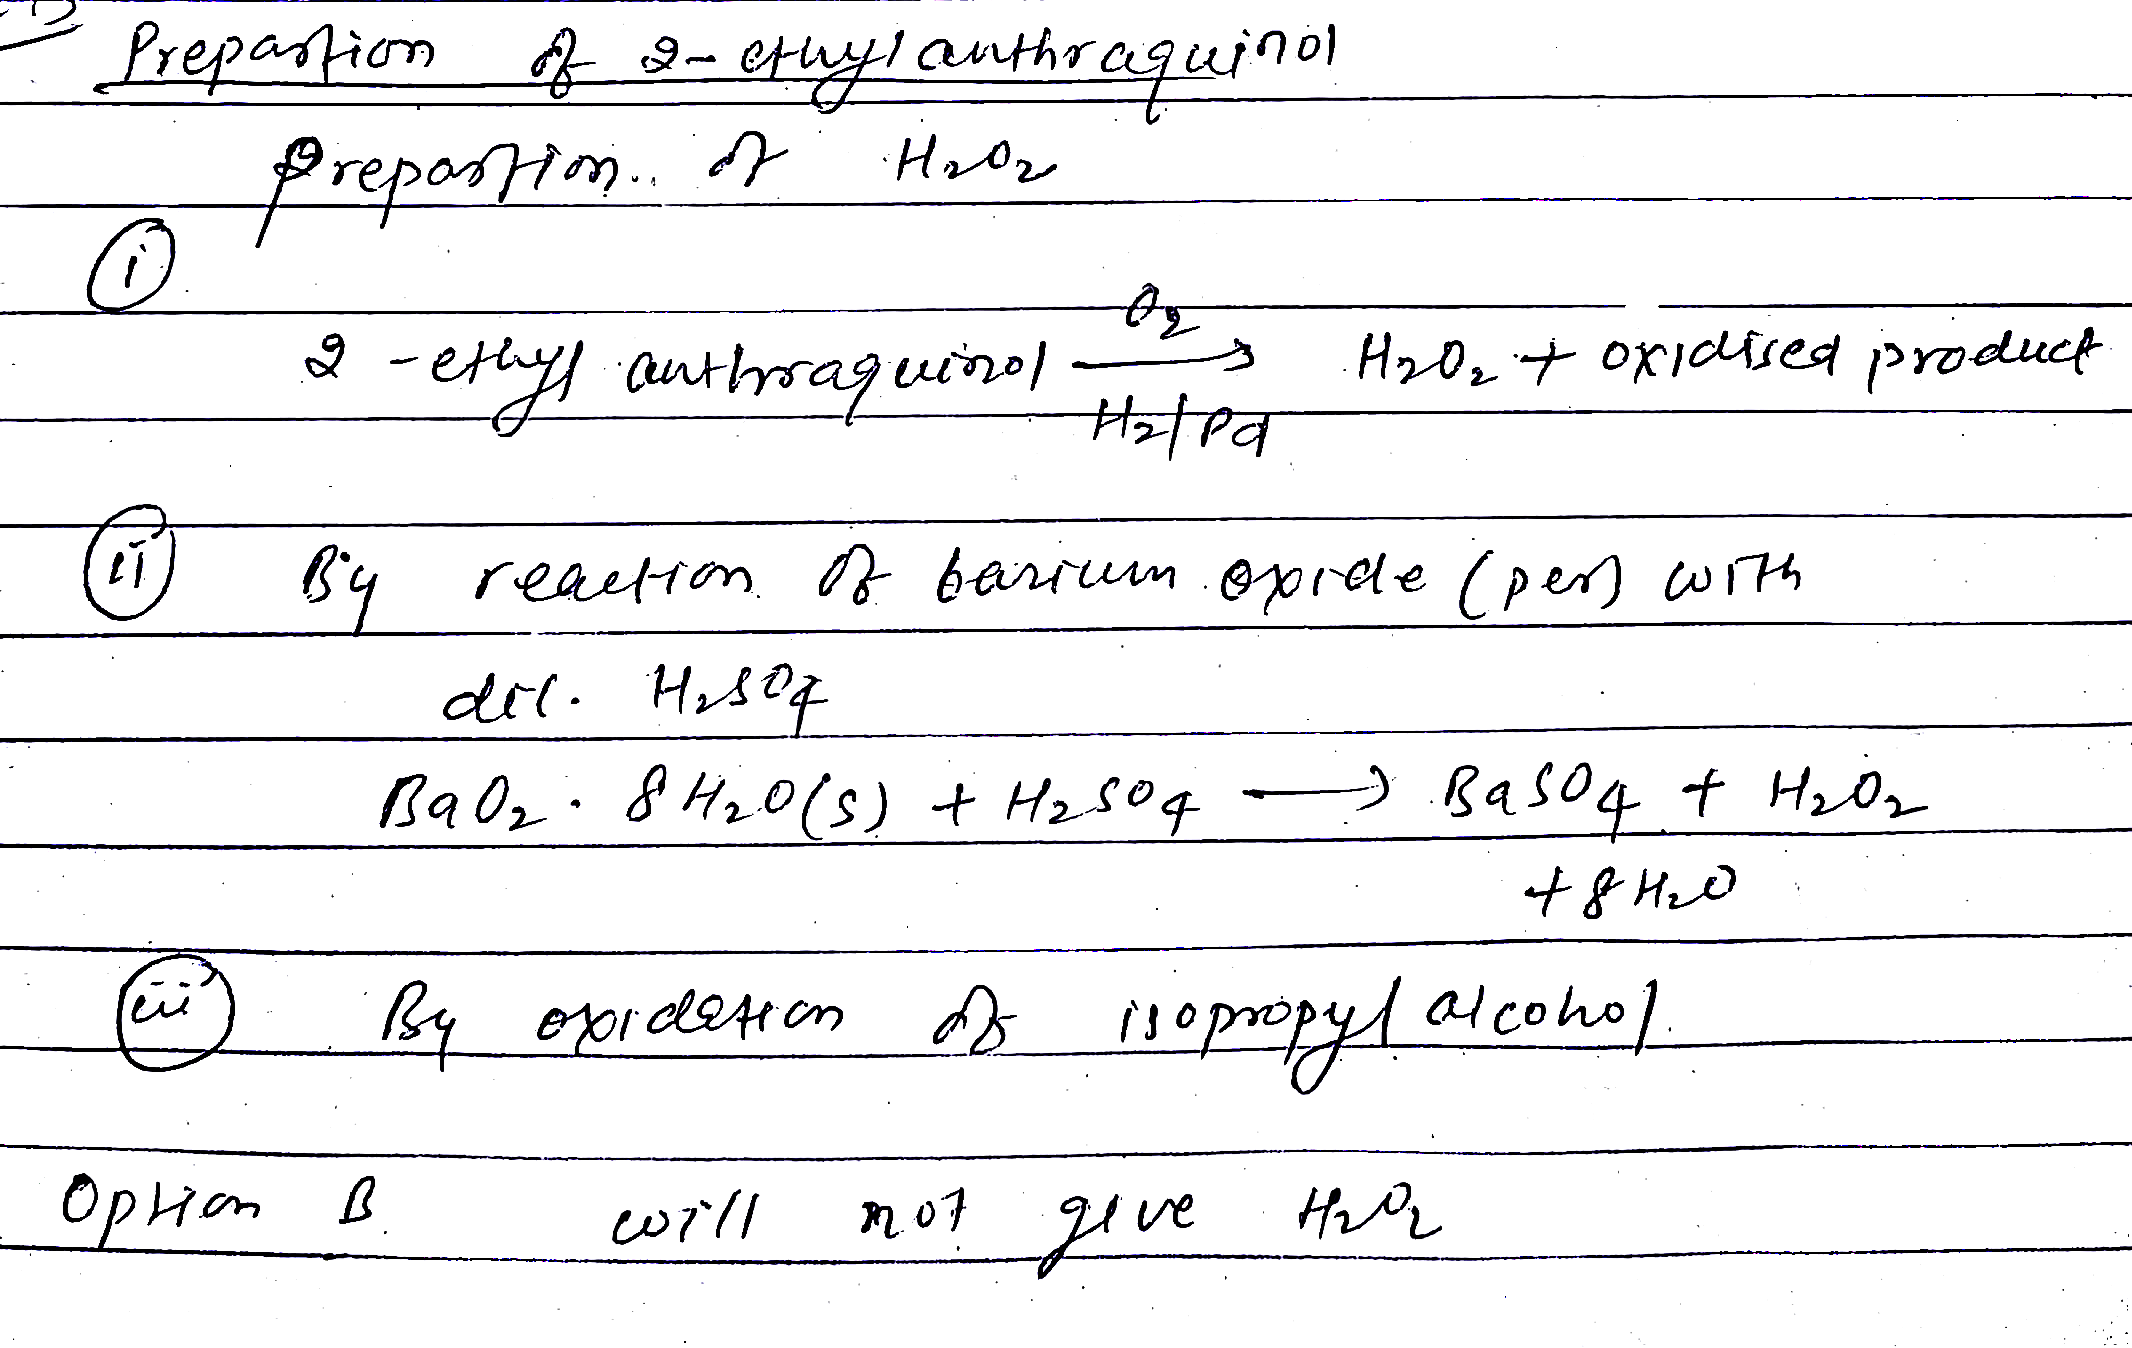 Prepartion of 2-ethylanthraquinol
Prepartion. of H₂O₂
(i)
O₂
2-ethyl anthraquinol → H₂O₂ + oxidised product
H₂/Pd
(ii) By reaction of barium oxide (per) with
dil. H₂SO₄
BaO₂ · 8H₂O(s) + H₂SO₄ → BaSO₄ + H₂O₂
+ 8H₂O
(iii) By oxidation of isopropyl alcohol.
Option B will not give H₂O₂